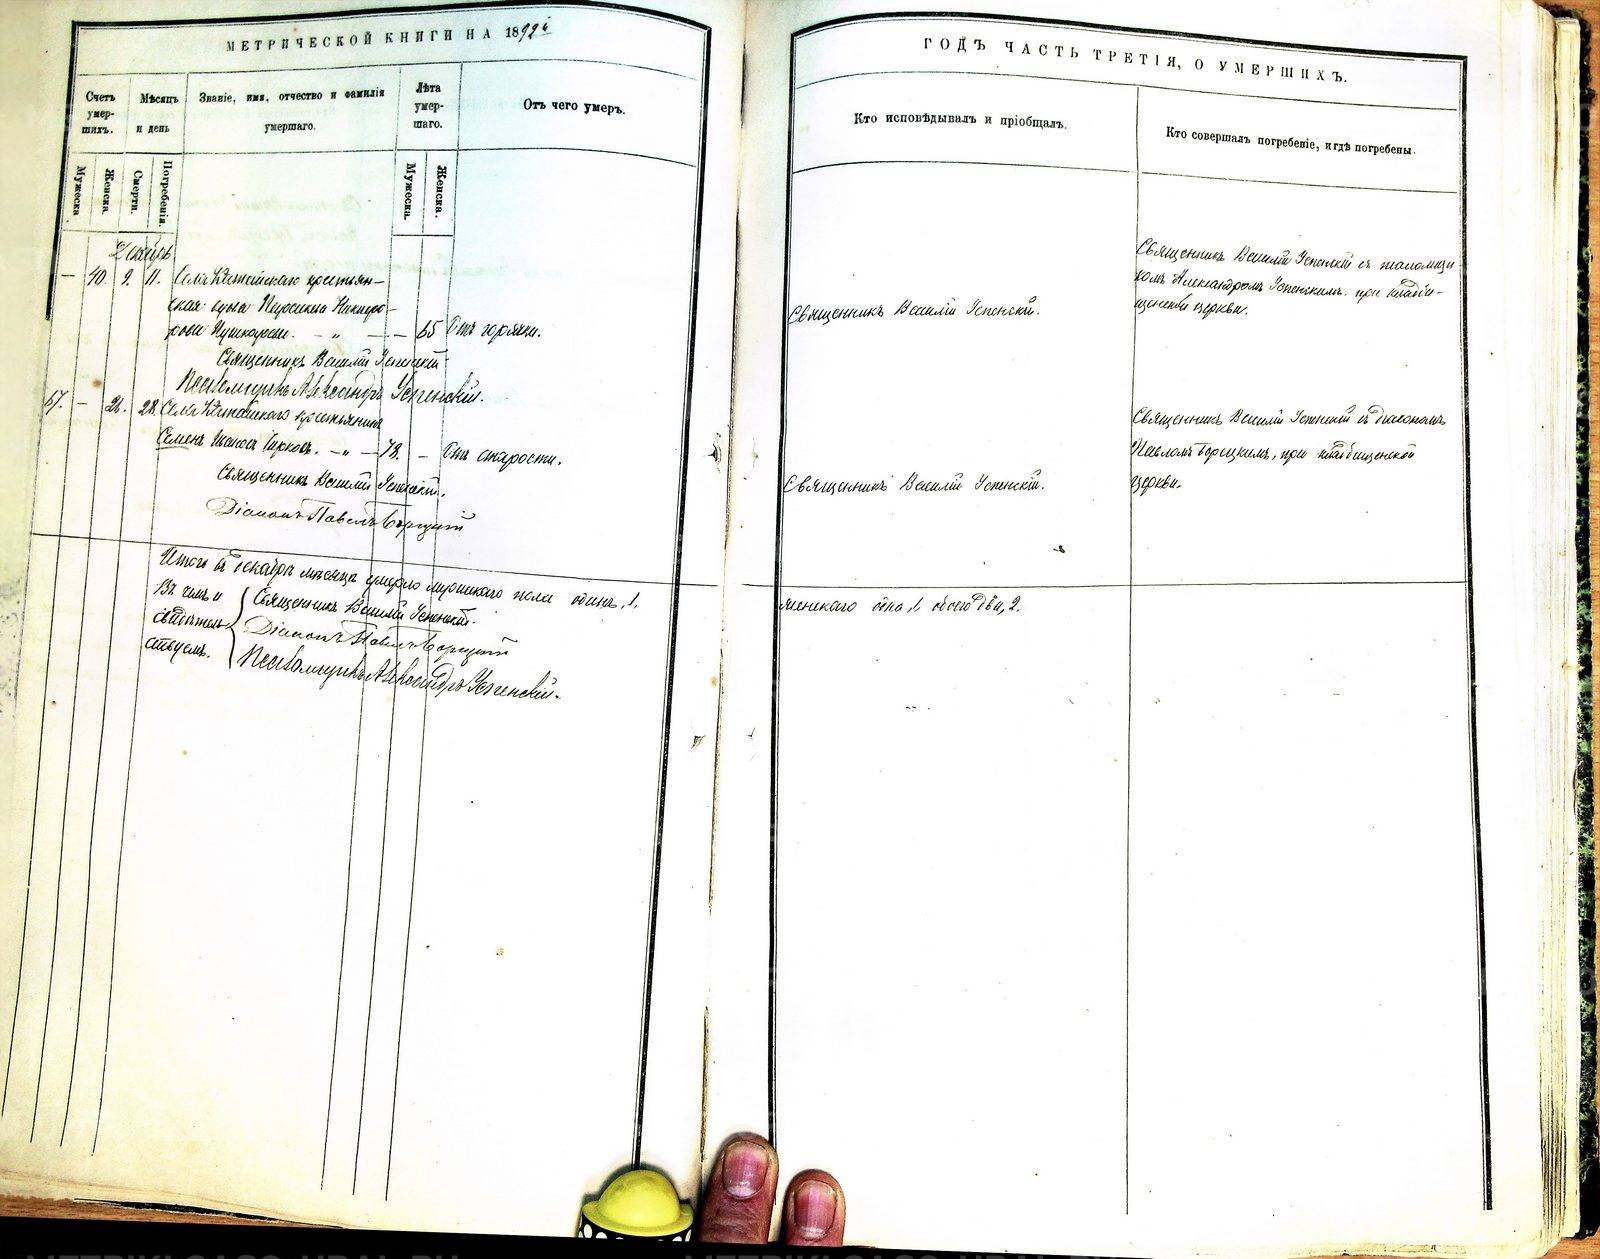 МЕТРИЧЕСКОЙ КНИГИ НА 1892й
Счетъ умер-шихъ.
Мѣсяцъ и день
Званіе, имя, отчество и фамилія умершаго.
Лѣта умер-шаго.
Отъ чего умеръ.
Мужеска
Женска.
Смерти.
Погребенія.
Мужеска.
Женска.
Декабрь
— 40. 9. 11. крестьян-
ская
65 Отъ горячки.
Священникъ Василій Успенскій
Псаломщикъ Александръ Успенскій.
57. — 26. 28. крестьянинъ
Семенъ Ивановъ — „ — 78. — Отъ старости.
Священникъ Василій Успенскій.
Діаконъ Павелъ
Итого въ декабрѣ мѣсяцѣ умерло мужскаго пола одинъ, 1,
Въ чемъ и
свидѣтель-
ствуемъ.
Священникъ Василій Успенскій.
Діаконъ Павелъ
Псаломщикъ Александръ Успенскій.
ГОДЪ ЧАСТЬ ТРЕТІЯ, О УМЕРШИХЪ.
Кто исповѣдывалъ и пріобщалъ.
Кто совершалъ погребеніе, и гдѣ погребены.
Священникъ Василій Успенскій.
Священникъ Василій Успенскій съ псаломщи-
комъ Александромъ Успенскимъ при кладби-
щенской церкви.
Священникъ Василій Успенскій.
Священникъ Василій Успенскій съ діакономъ
Павломъ при кладбищенской
церкви.
женскаго одна, 1 обоего два, 2.